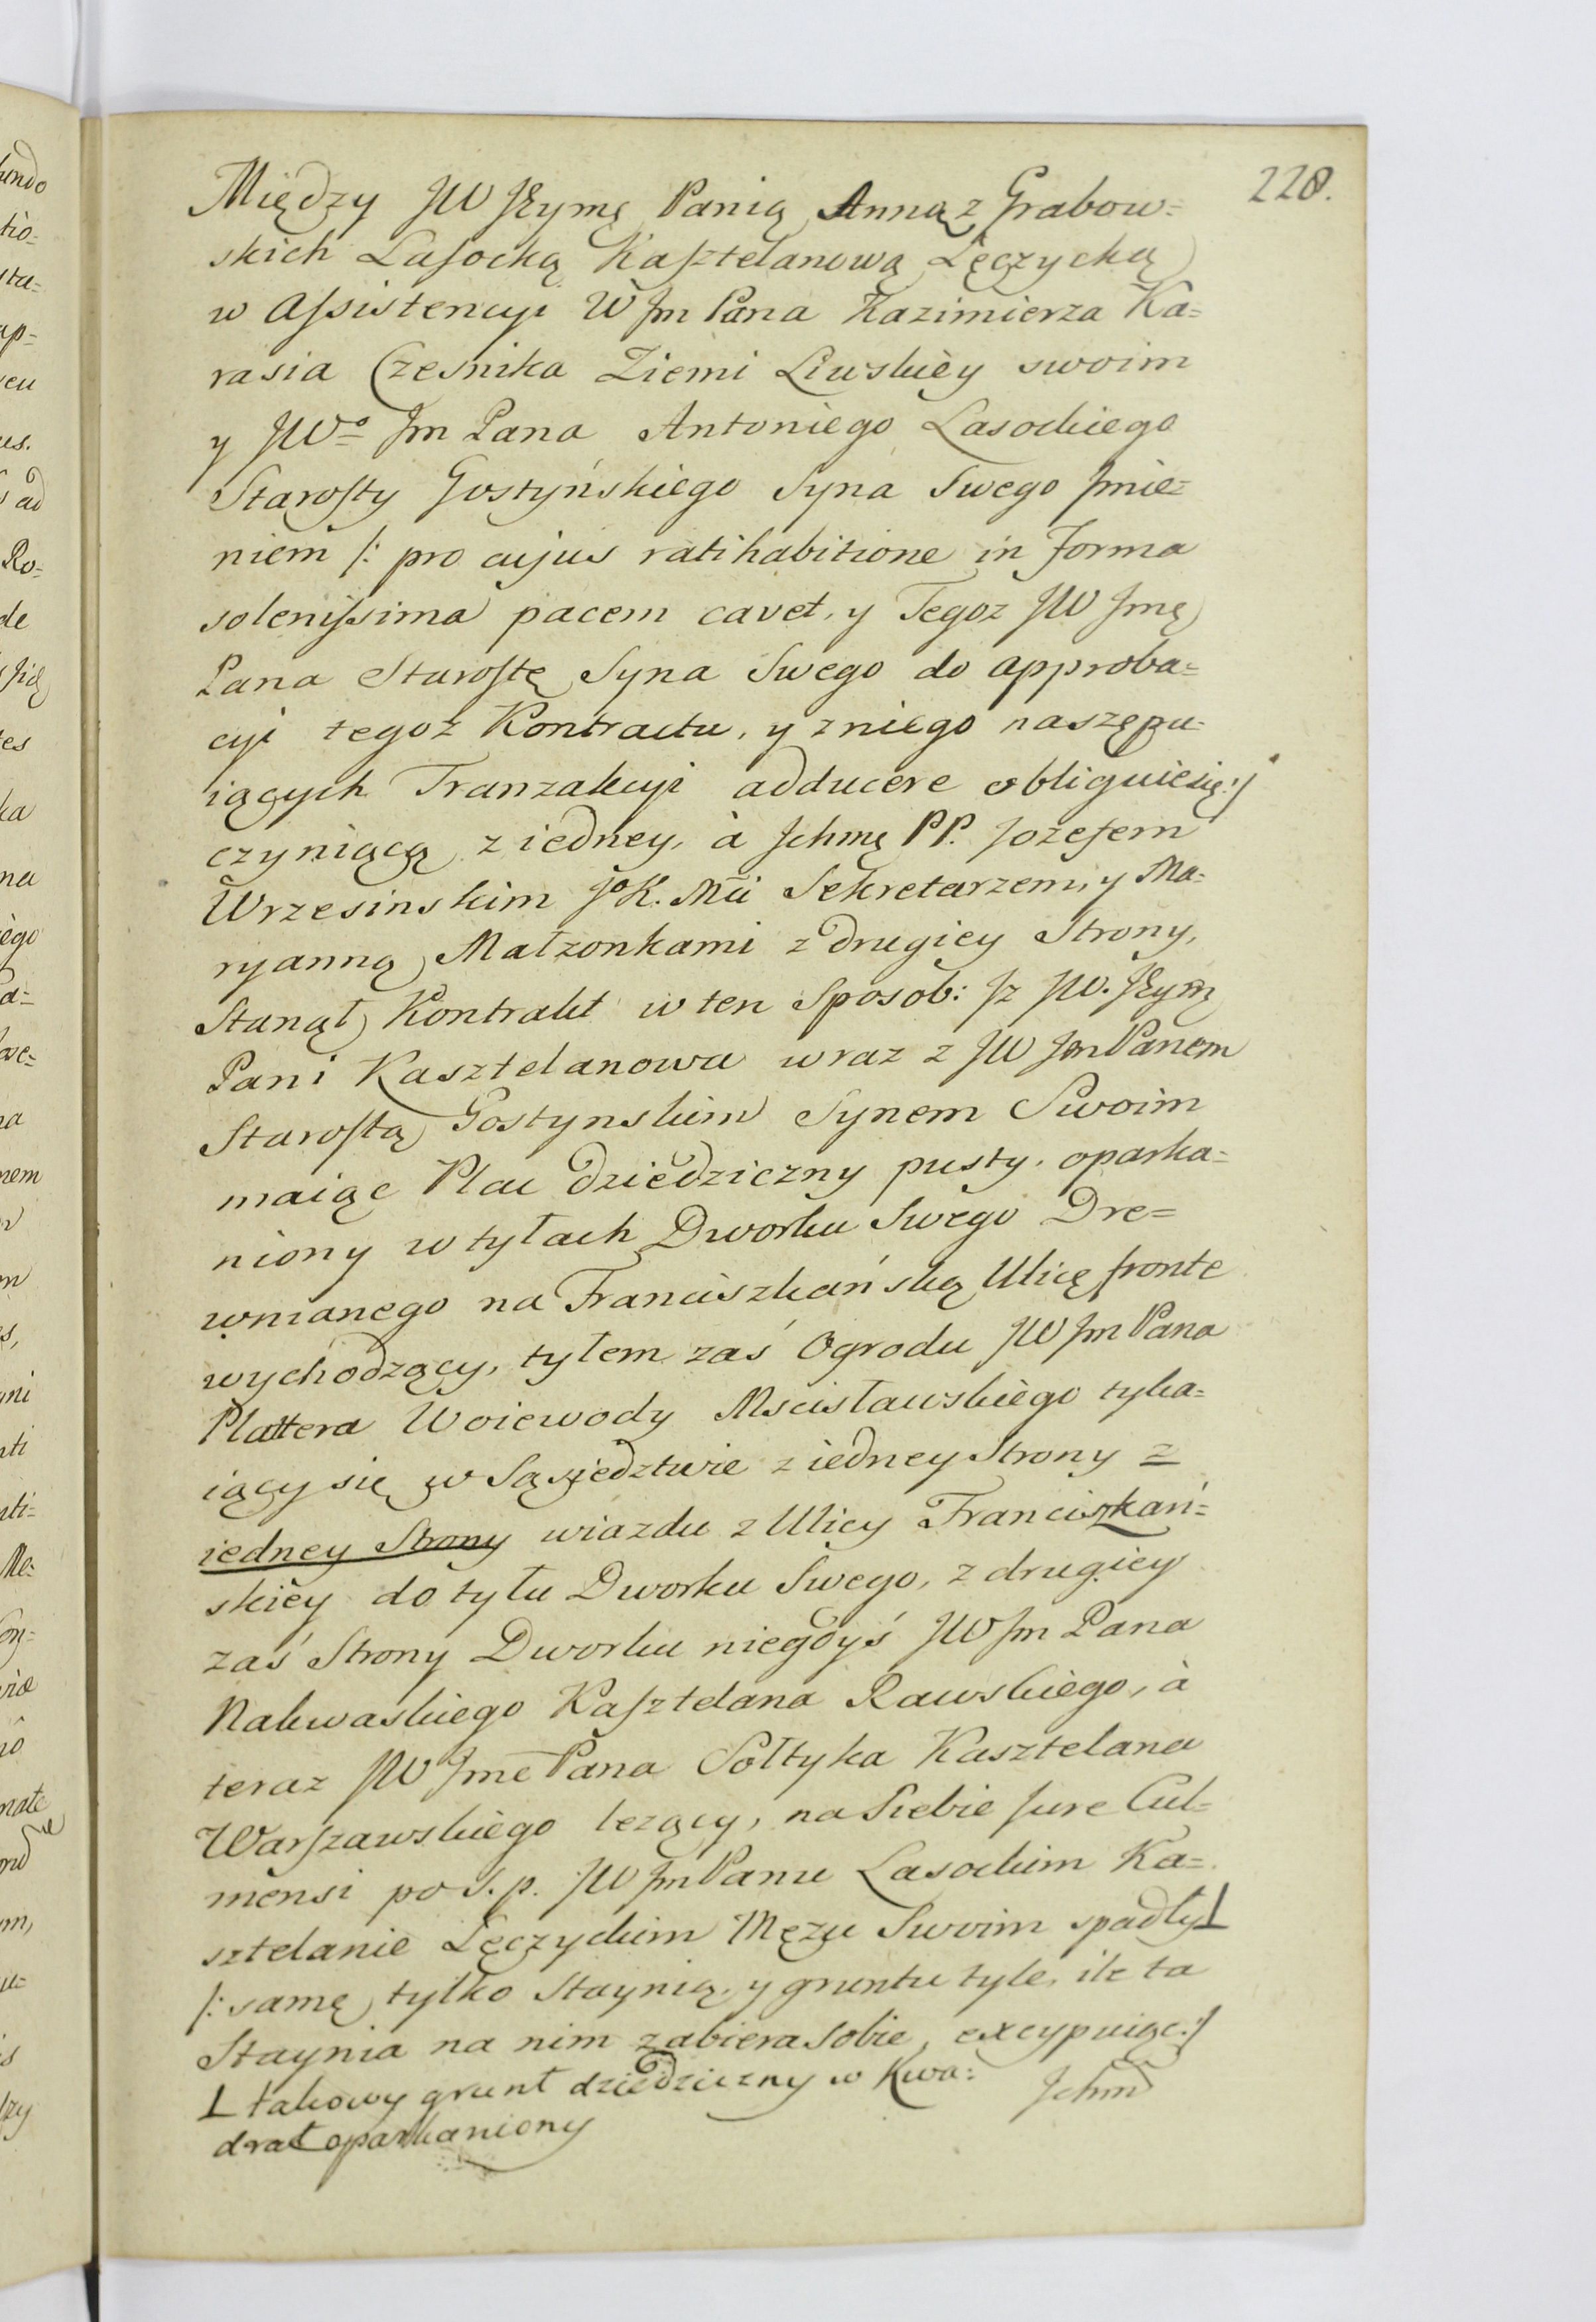 228.
Między JW JEymę Panią Anną z Grabow=
skich Lasocką Kasztelanową Łęczycką
w Assistencyi W Jm Pana Kazimierza Ka=
rasia Czesnika Ziemi Liwskiey swoim
y JWo Jm Pana Antoniego Lasockiego
Starosty Gostyńskiego Syna Swego Jmie=
niem /: pro cujus ratihabitione in Forma
solenissima pacem cavet, y Tegoż JW Jmę
Pana Starostę Syna Swego do approba=
cyi tegoż Kontractu, y z niego naszępu=
iących Tranzakcyi adducere obliguie się :/
czyniącą z iedney, à Jchmę PP. Jozefem
Wrzesinskim JoK. Mći Sekretarzem, y Ma=
ryanną Małzonkami z drugiey Strony,
Stanął Kontrakt w ten Sposob: Jz JW. JEymę
Pani Kasztelanowa wraz z JW Jm Panem
Starostą Gostynskim Synem Swoim
maiąc Plac dziedziczny pusty, oparka=
niony w tyłach Dworku Swego Dre=
wnianego na Franciszkańską Ulicę fronte
wychodzący, tyłem zaś Ogrodu JW Jm Pana
Plattera Woiewody Mscisławskiego tyka=
iący się w Sąsiedztwie z iedney Strony z
iedney Strony wiazdu z Ulicy Franciszkań=
skiey do tyłu Dworku Swego, z drugiey
zaś Strony Dworku niegdyś JW Jm Pana
Nakwaskiego Kasztelana Rawskiego, à
teraz JW Jme Pana Sołtyka Kasztelana
Warszawskiego lezący, na Siebie Jure Cul=
mensi po S. p. JW Jm Panu Lasockim Ka=
sztelanie Łęczyckim Męzu Swoim spadły ⊥
/: samę tylko Staynią, y gruntu tyle, ile ta
Staynia na nim zabiera sobie, excypuiąc :/
⊥ takowy grunt dziedziczny w Kwa=
drat oparkaniony
Jchm